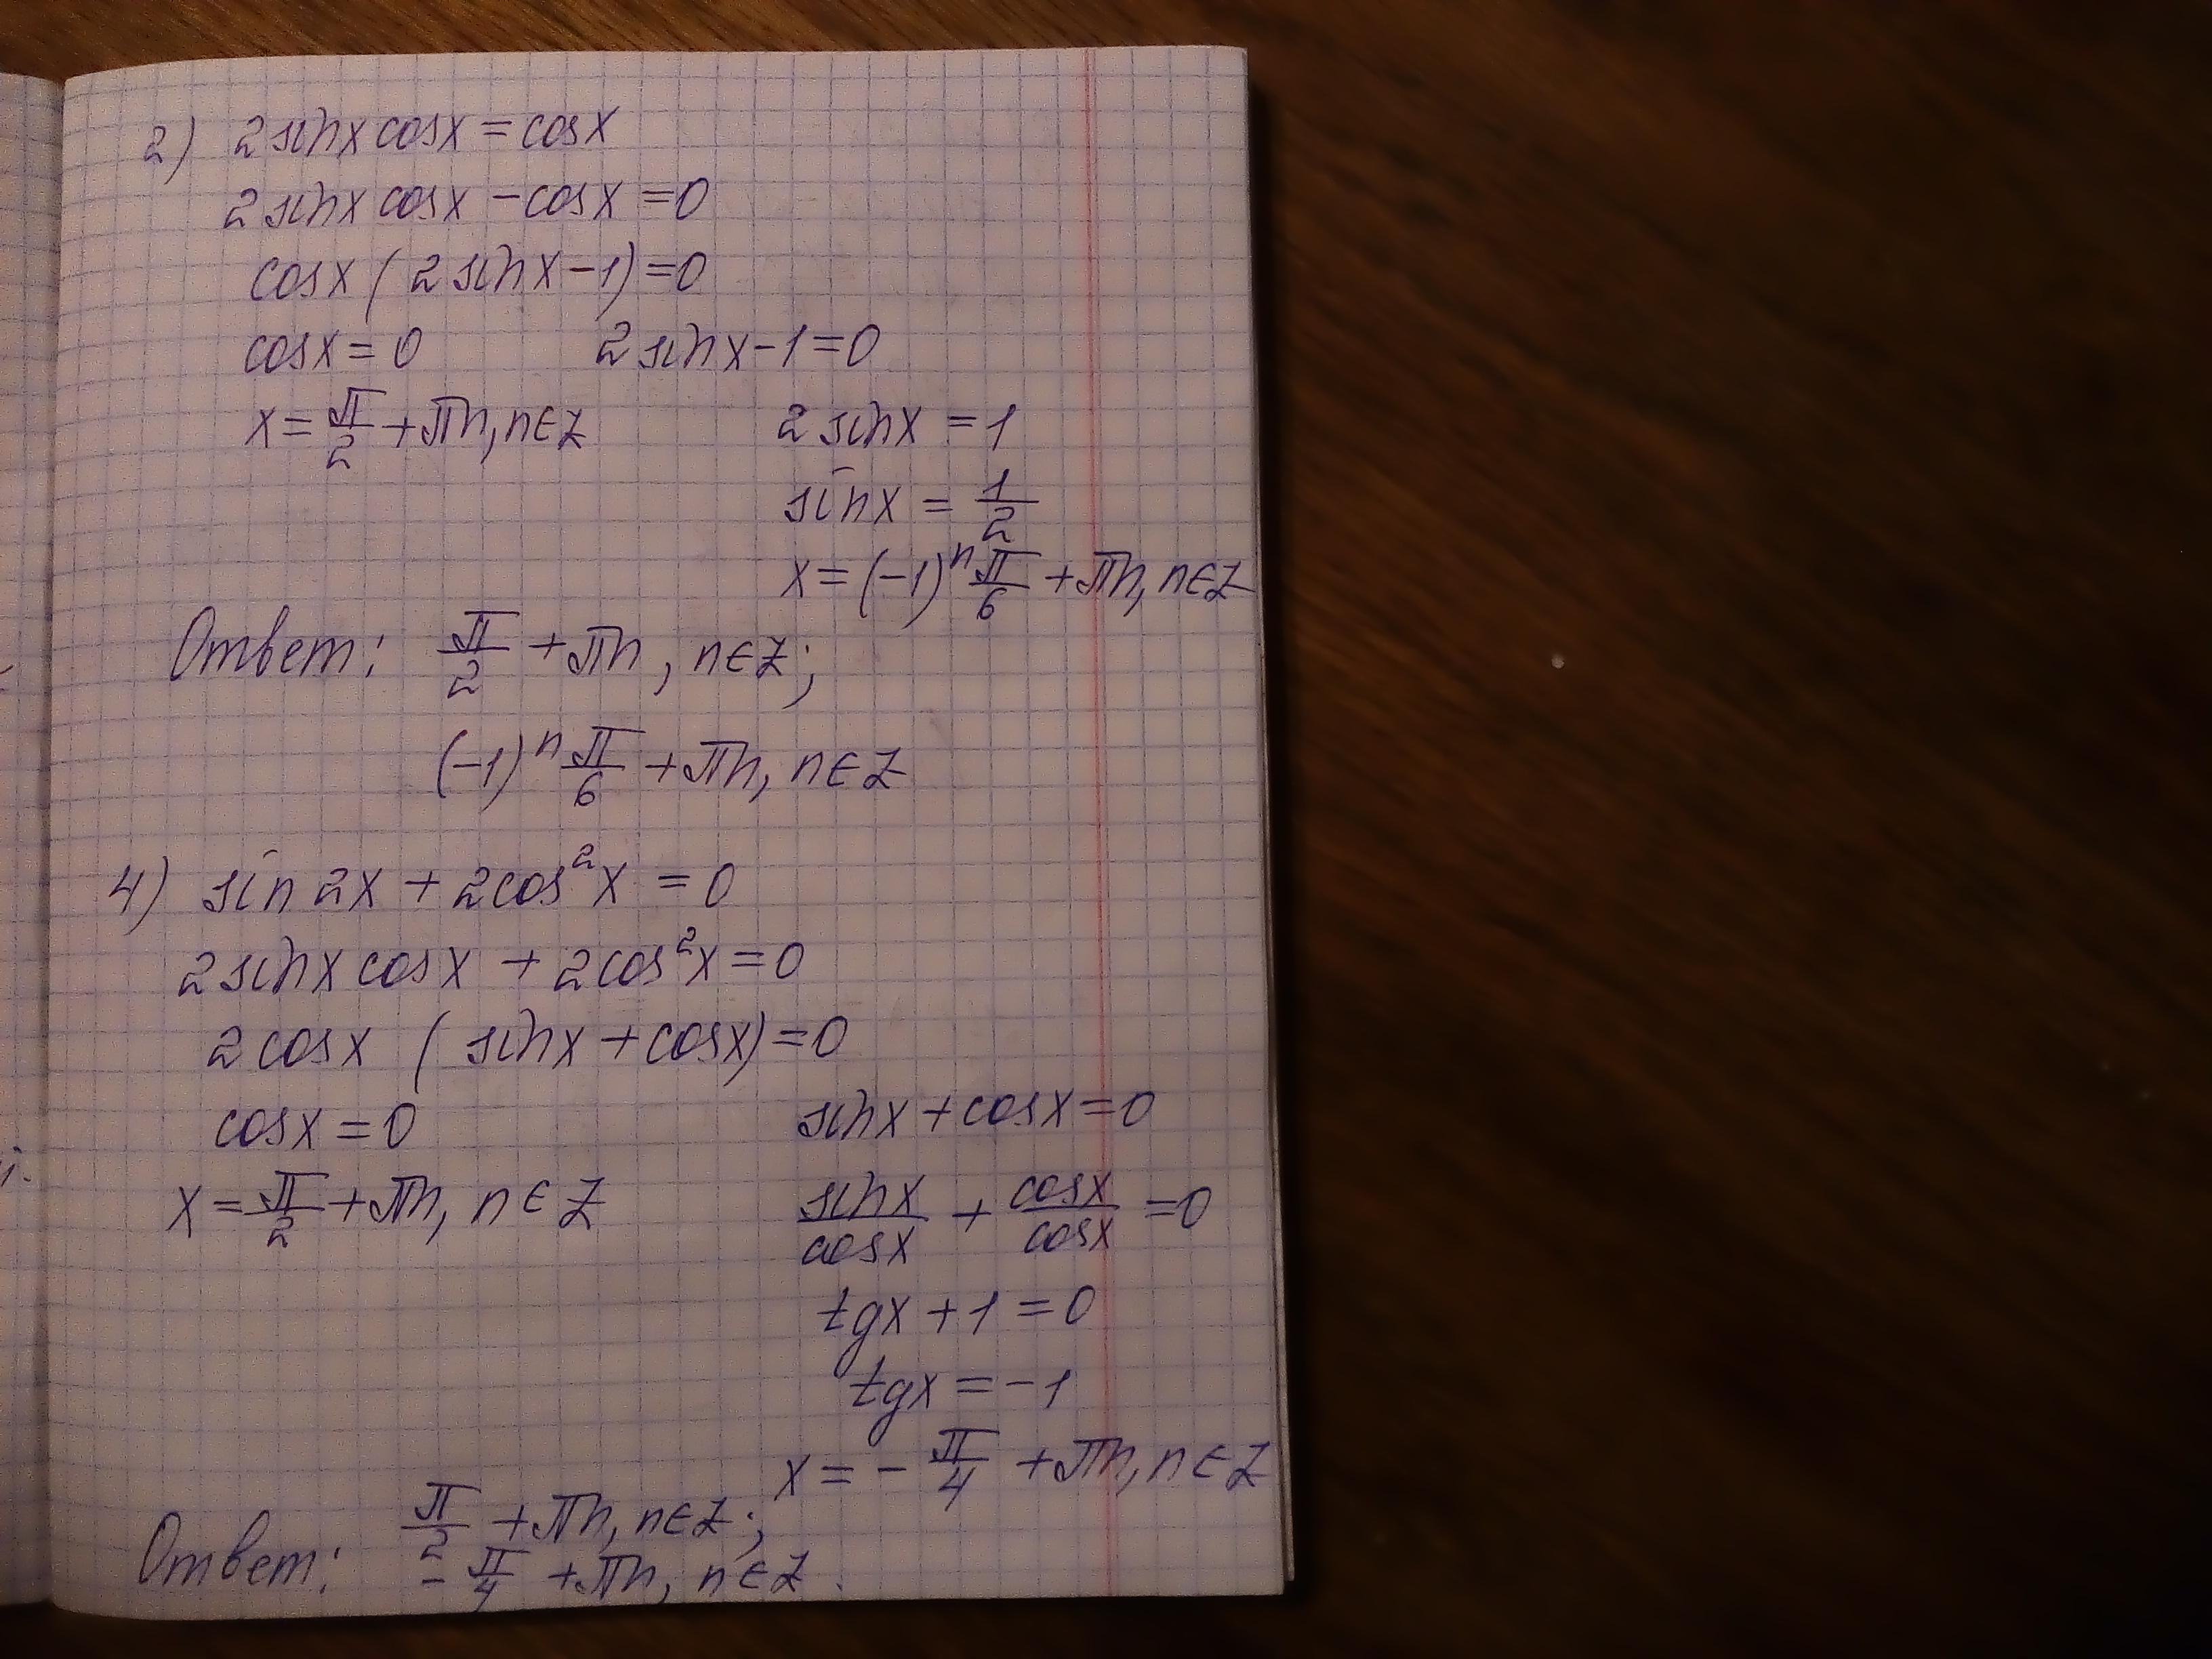 2) 2sinx cosx = cosx
2sinx cosx - cosx = 0
cosx (2sinx - 1) = 0
cosx = 0 2sinx - 1 = 0
x = π/2 + πn, n∈Z 2sinx = 1
sinx = 1/2
x = (-1)ⁿ π/6 + πn, n∈Z
Ответ: π/2 + πn, n∈Z;
(-1)ⁿ π/6 + πn, n∈Z
4) sin2x + 2cos²x = 0
2sinx cosx + 2cos²x = 0
2cosx (sinx + cosx) = 0
cosx = 0 sinx + cosx = 0
x = π/2 + πn, n∈Z sinx/cosx + cosx/cosx = 0
tgx + 1 = 0
tgx = -1
x = - π/4 + πn, n∈Z
Ответ: π/2 + πn, n∈Z;
- π/4 + πn, n∈Z.